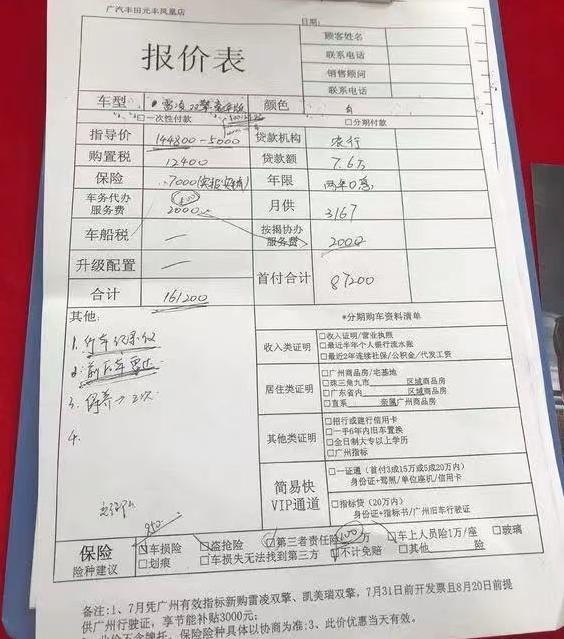 广汽丰田元丰凤凰店
日期:
报价表
顾客姓名
联系电话
销售顾问
联系电话
车型 雷凌双擎豪华版 颜色 白
□一次性付款 □分期付款
指导价 144800-5000 贷款机构 农行
购置税 12400 贷款额 7.6万
保险 7000(实报实销) 年限 两年0息
车务代办服务费 2000 月供 3167
车船税 — 按揭协办服务费 2000
升级配置 — 首付合计 87200
合计 161200
*分期购车资料清单
其他:
1. 行车记录仪
2. 前后车雷达
3. 保养
4.
收入类证明
□收入证明/营业执照
□最近半年个人银行流水账
□最近2年连续社保/公积金/代发工资
居住类证明
□广州商品房/宅基地
□珠三角九市 区域商品房
□广东省内 区域商品房
□直系 亲属广州商品房
其他类证明
□招行或建行信用卡
□一手6年内旧车置换
□全日制大专以上学历
□广州指标
简易快VIP通道
□一证通(首付3成15万或5成20万内)
身份证+驾照/单位座机/信用卡
□指标贷(20万内)
身份证+指标书/广州旧车行驶证
保险
险种建议
□车损险 □盗抢险 □第三者责任险100万 □车上人员险1万/座 □玻璃
□划痕 □车损失无法找到第三方 □不计免赔 □其他 险
备注:1、7月凭广州有效指标新购雷凌双擎、凯美瑞双擎,7月31日前开发票且8月20日前提
供广州行驶证,享节能补贴3000元;
保险险种具体以协商为准;3、此价优惠当天有效。